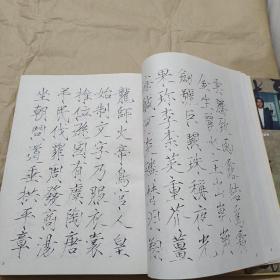 雲騰致雨露結為霜
金生麗水玉出崑岡
劍號巨闕珠稱夜光
果珍李柰菜重芥薑
海鹹河淡鱗潛羽翔
龍師火帝鳥官人皇
始制文字乃服衣裳
推位遜國有虞陶唐
弔民伐罪周發商湯
坐朝問道垂拱平章